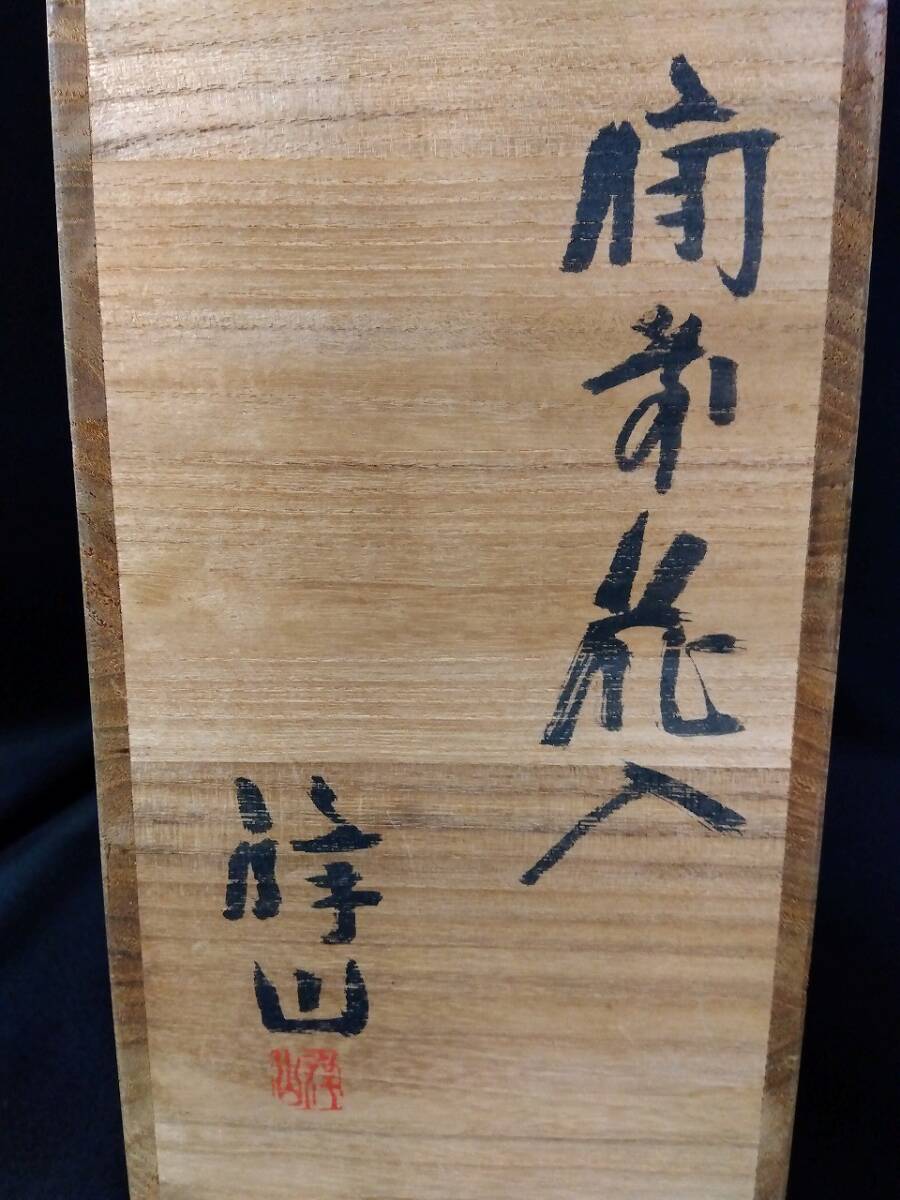 備前花入
祥山